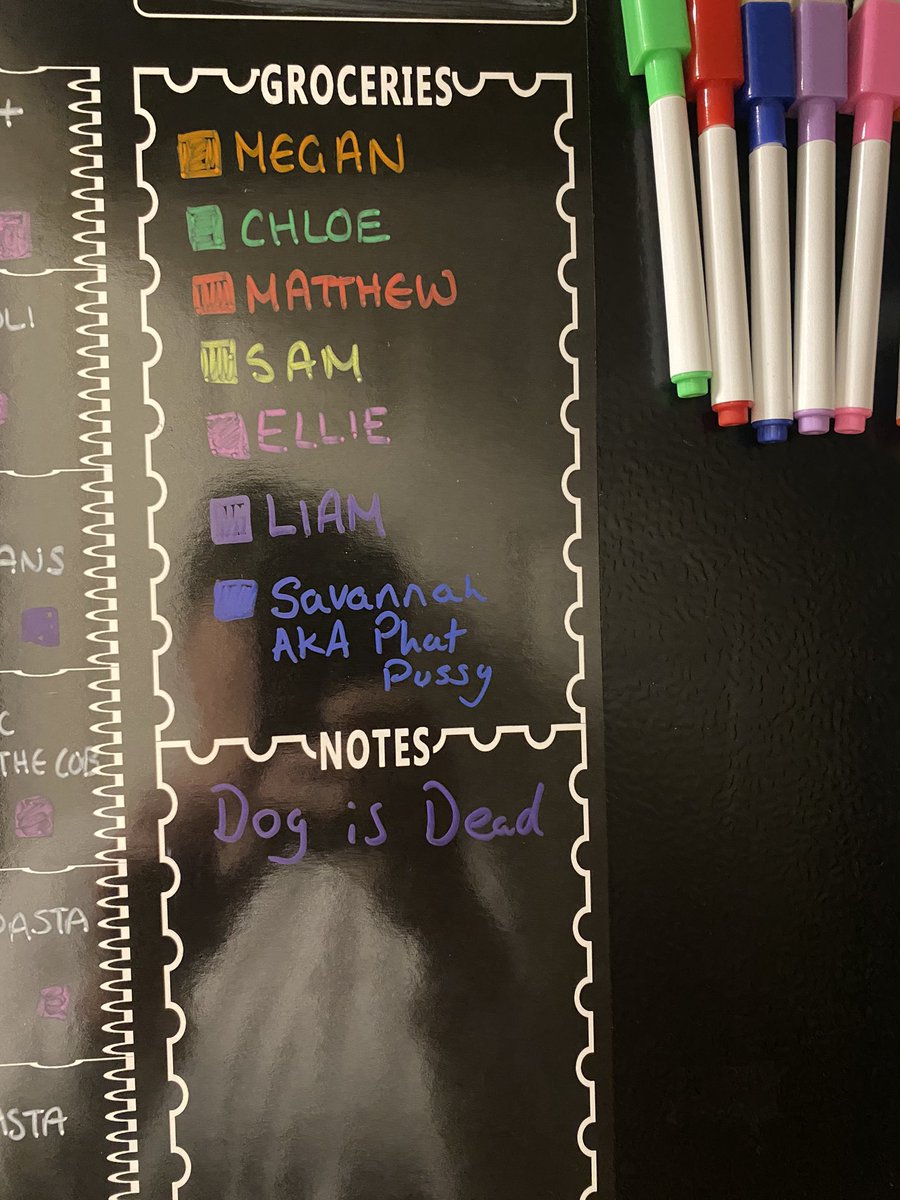 +
GROCERIES
MEGAN
CHLOE
MATTHEW
SAM
ELLIE
LIAM
Savannah
AKA Phat
Pussy
NOTES
Dog is Dead
OLI
ANS
C
THE COB
PASTA
ASTA